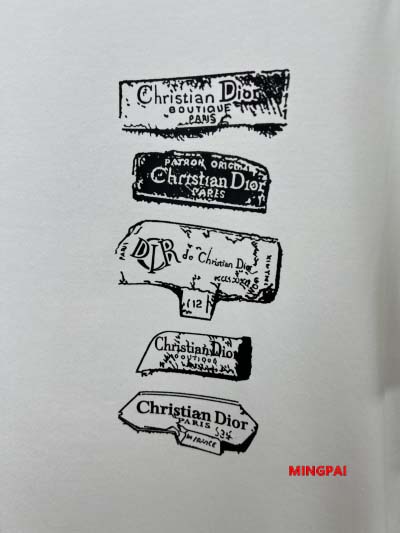 Christian Dior
BOUTIQUE
PARIS
PATRON ORIGINAL
Christian Dior
PARIS
PARIS
DIOR de Christian Dior
112
Christian Dior
BOUTIQUE
Christian Dior
PARIS
534
FRANCE
MINGPAI